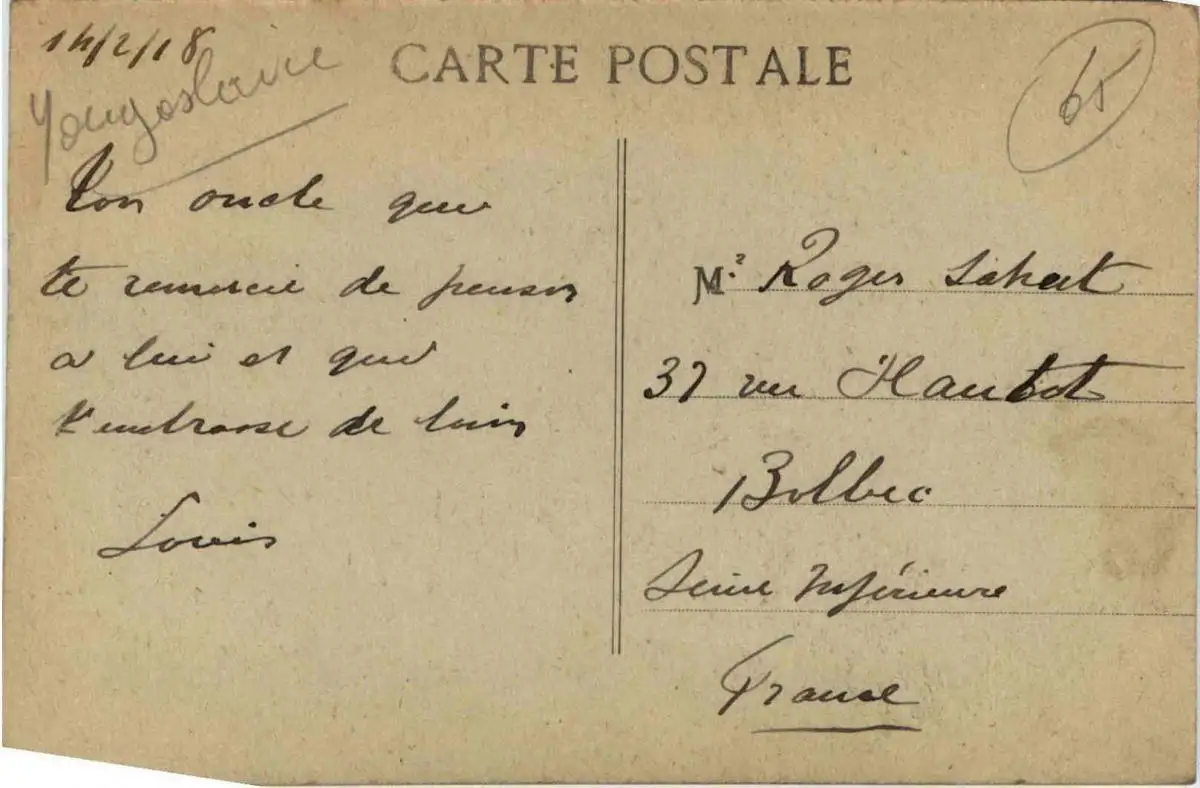 14/2/18
CARTE POSTALE
65
Yougoslavie
Ton oncle qui
te remercie de penser
a lui et qui
t'embrasse de loin
Louis
Mr Roger
37 rue Hautot
Bolbec
Seine Inférieure
France